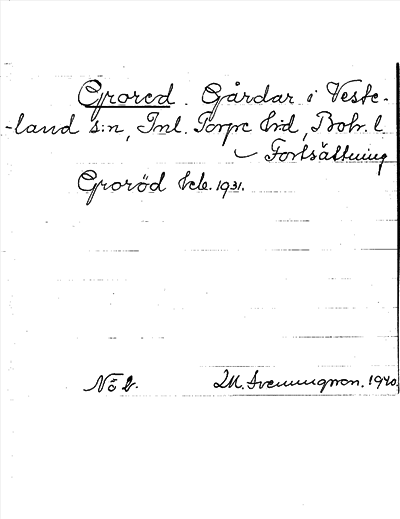 Grored. Gårdar i Veste-
-land s:n, Inl. Torpe hrd, Bohr. l.
Fortsättning
Groröd hcb. 1931.
Nö 2. M. Svenungson. 1940.